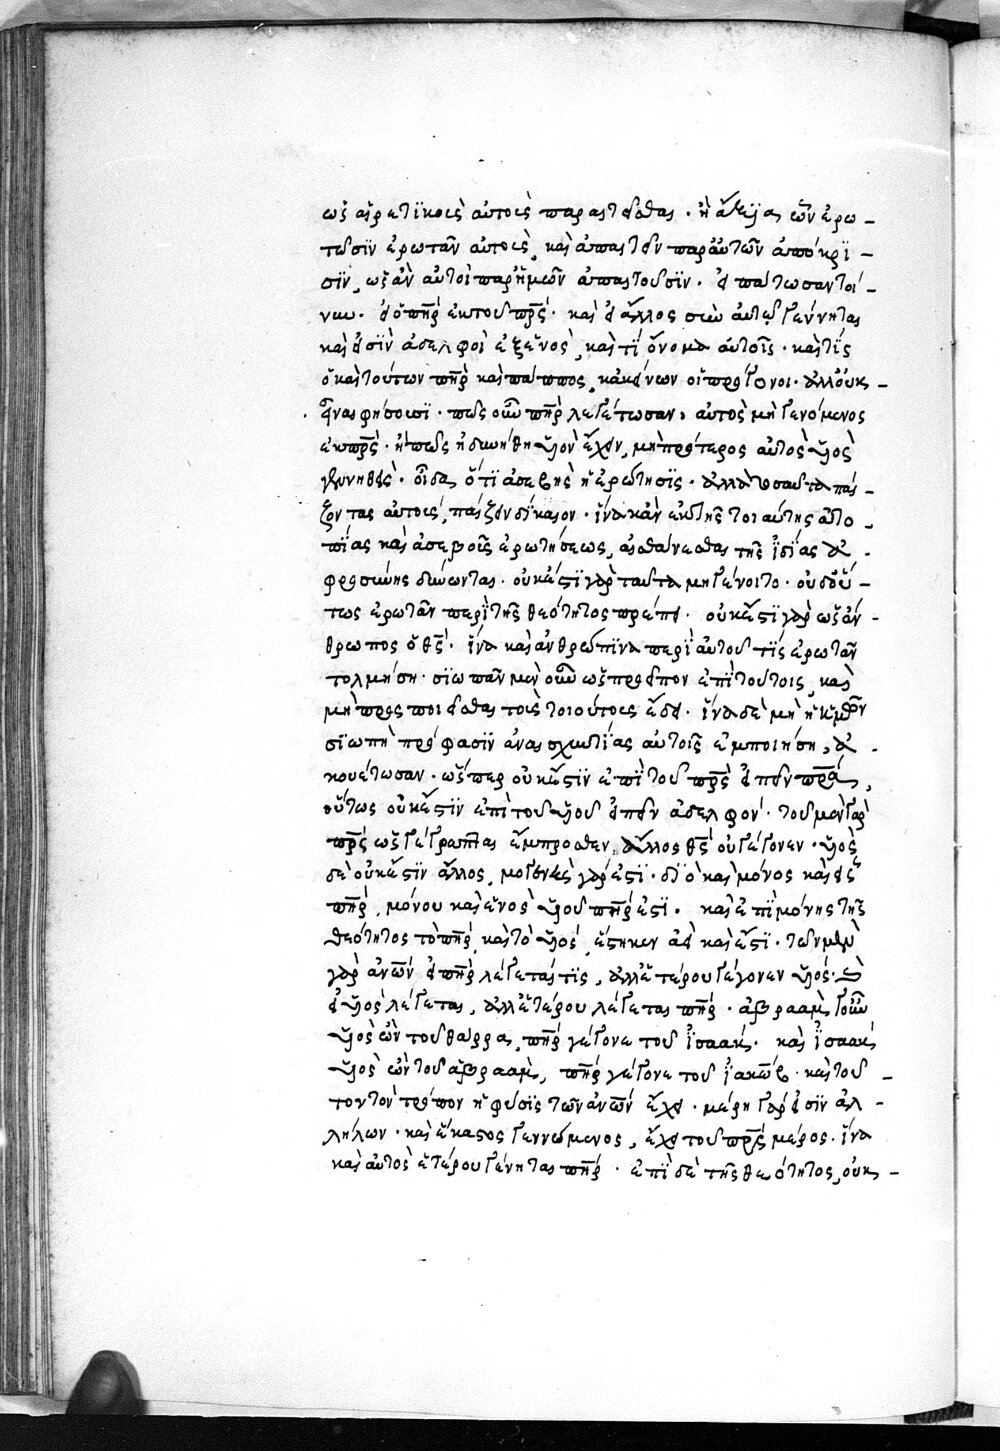 ὡς αἱρετϊκοὺς αὐτοὺς παραιτεῖσθαι · ἢ ἄξιον ὧν ἐρω –
τῶσϊν ἐρωτᾶν αὐτοὺς, καὶ ἀπαιτεῖν παρ' αὐτῶν ἀπόκρϊ –
σϊν, ὡς ἂν αὐτοὶ παρ' ἡμῶν ἀπαιτοῦσϊν · εἰπάτωσαν τοί –
νυν · εἰ ὁ πηρ ἐκ τοῦ πρς · καὶ εἰ ἄλλος σὺν αὐτῷ γεννηται
καὶ εἰσϊν ἀδελφοὶ ἐξ ἑνὸς, καὶ τί ὄνομα αὐτοῖς · καὶ τίς
ὁ καὶ τούτων πηρ καὶ πάππος, κἀκείνων οἱ πρόγονοι · ἀλλ' οὐκ –
εἶναι φήσουσϊ · πῶς οὖν πηρ λεγέτωσαν, αὐτὸς μὴ γενόμενος
ἐκ πρς · ἢ πῶς ἠδυνήθη υἱὸν ἔχειν, μὴ πρότερος αὐτὸς υἱὸς
γεννηθείς · οἶδα ὅτϊ ἀσεβὴς ἡ ἐρώτησϊς · ἀλλὰ τοιαῦτα παί –
ζοντας αὐτοὺς, παίζειν δίκαιον · ἵνα κἂν ἐκ τῆς τοιαύτης ἀτο –
πϊας καὶ ἀσεβοῦς ἐρωτήσεως, αἰσθάνεσθαι τῆς ϊδίας ἀ –
φροσύνης δύνωνται · οὐκ ἔστϊ γὰρ ταῦτα μὴ γένοιτο · οὐδ' οὕ –
τως ἐρωτᾶν περϊ τῆς θεότητος πρέπει · οὐκ ἔστϊ γὰρ ὡς ἄν –
θρωπος ὁ θς · ἵνα καὶ ἀνθρώπϊνα περϊ αὐτοῦ τϊς ἐρωτᾶν
τολμήσῃ · σϊωπᾶν μὲν οὖν ὡς προεῖπον ἐπϊ τούτοις, καὶ
μὴ προςποιεῖσθαι τοὺς τοιούτους ἔδει · ἵνα δὲ μὴ ἡ ἡμῶν
σϊωπὴ πρόφασϊν ἀναισχυντίας αὐτοῖς ἐμποιήσῃ, ἀ –
κουέτωσαν · ὥσπερ οὐκ ἔστϊν ἐπϊ τοῦ πρς εἰπεῖν πρα,
οὕτως οὐκ ἔστϊν ἐπὶ τοῦ υἱοῦ εἰπεῖν ἀδελφόν · τοῦ μὲν γὰρ
πρς ὡς γέγραπται ἔμπροσθεν, ἄλλος θς οὐ γέγονεν · υἱὸς
δὲ οὐκ ἔστϊν ἄλλος, μογενὴς γάρ ἐστϊ · δϊὸ καὶ μόνος καὶ εἷς
πηρ, μόνου καὶ ἑνὸς υἱοῦ πηρ ἐστϊ · καὶ ἐπϊ μόνης τῆς
θεότητος τὸ πηρ, καὶ τὸ υἱὸς, ἕστηκεν ἀεὶ καὶ ἔστϊ · τῶν μὲν
γὰρ ἀνων εἰ πηρ λέγεταί τϊς, ἀλλ' ἑτέρου γέγονεν υἱός · καὶ
εἰ υἱὸς λέγεται, ἀλλ' ἑτέρου λέγεται πηρ · ἀβρααμ γοῦν
υἱὸς ὢν τοῦ θάρρα, πηρ γέγονε τοῦ ϊσαάκ · καὶ ϊσαὰκ
υἱὸς ὢν τοῦ ἀβρααμ, πηρ γέγονε τοῦ ϊακὼβ · καὶ τοῦ –
τον τὸν τρόπον ἡ φύσϊς τῶν ἀνων ἔχει · μέρη γάρ εἰσϊν ἀλ –
λήλων · καὶ ἕκαστος γεννώμενος, ἔχει τοῦ πρς μέρος · ἵνα
καὶ αὐτὸς ἑτέρου γένηται πηρ · ἐπϊ δὲ τῆς θεότητος, οὐκ –